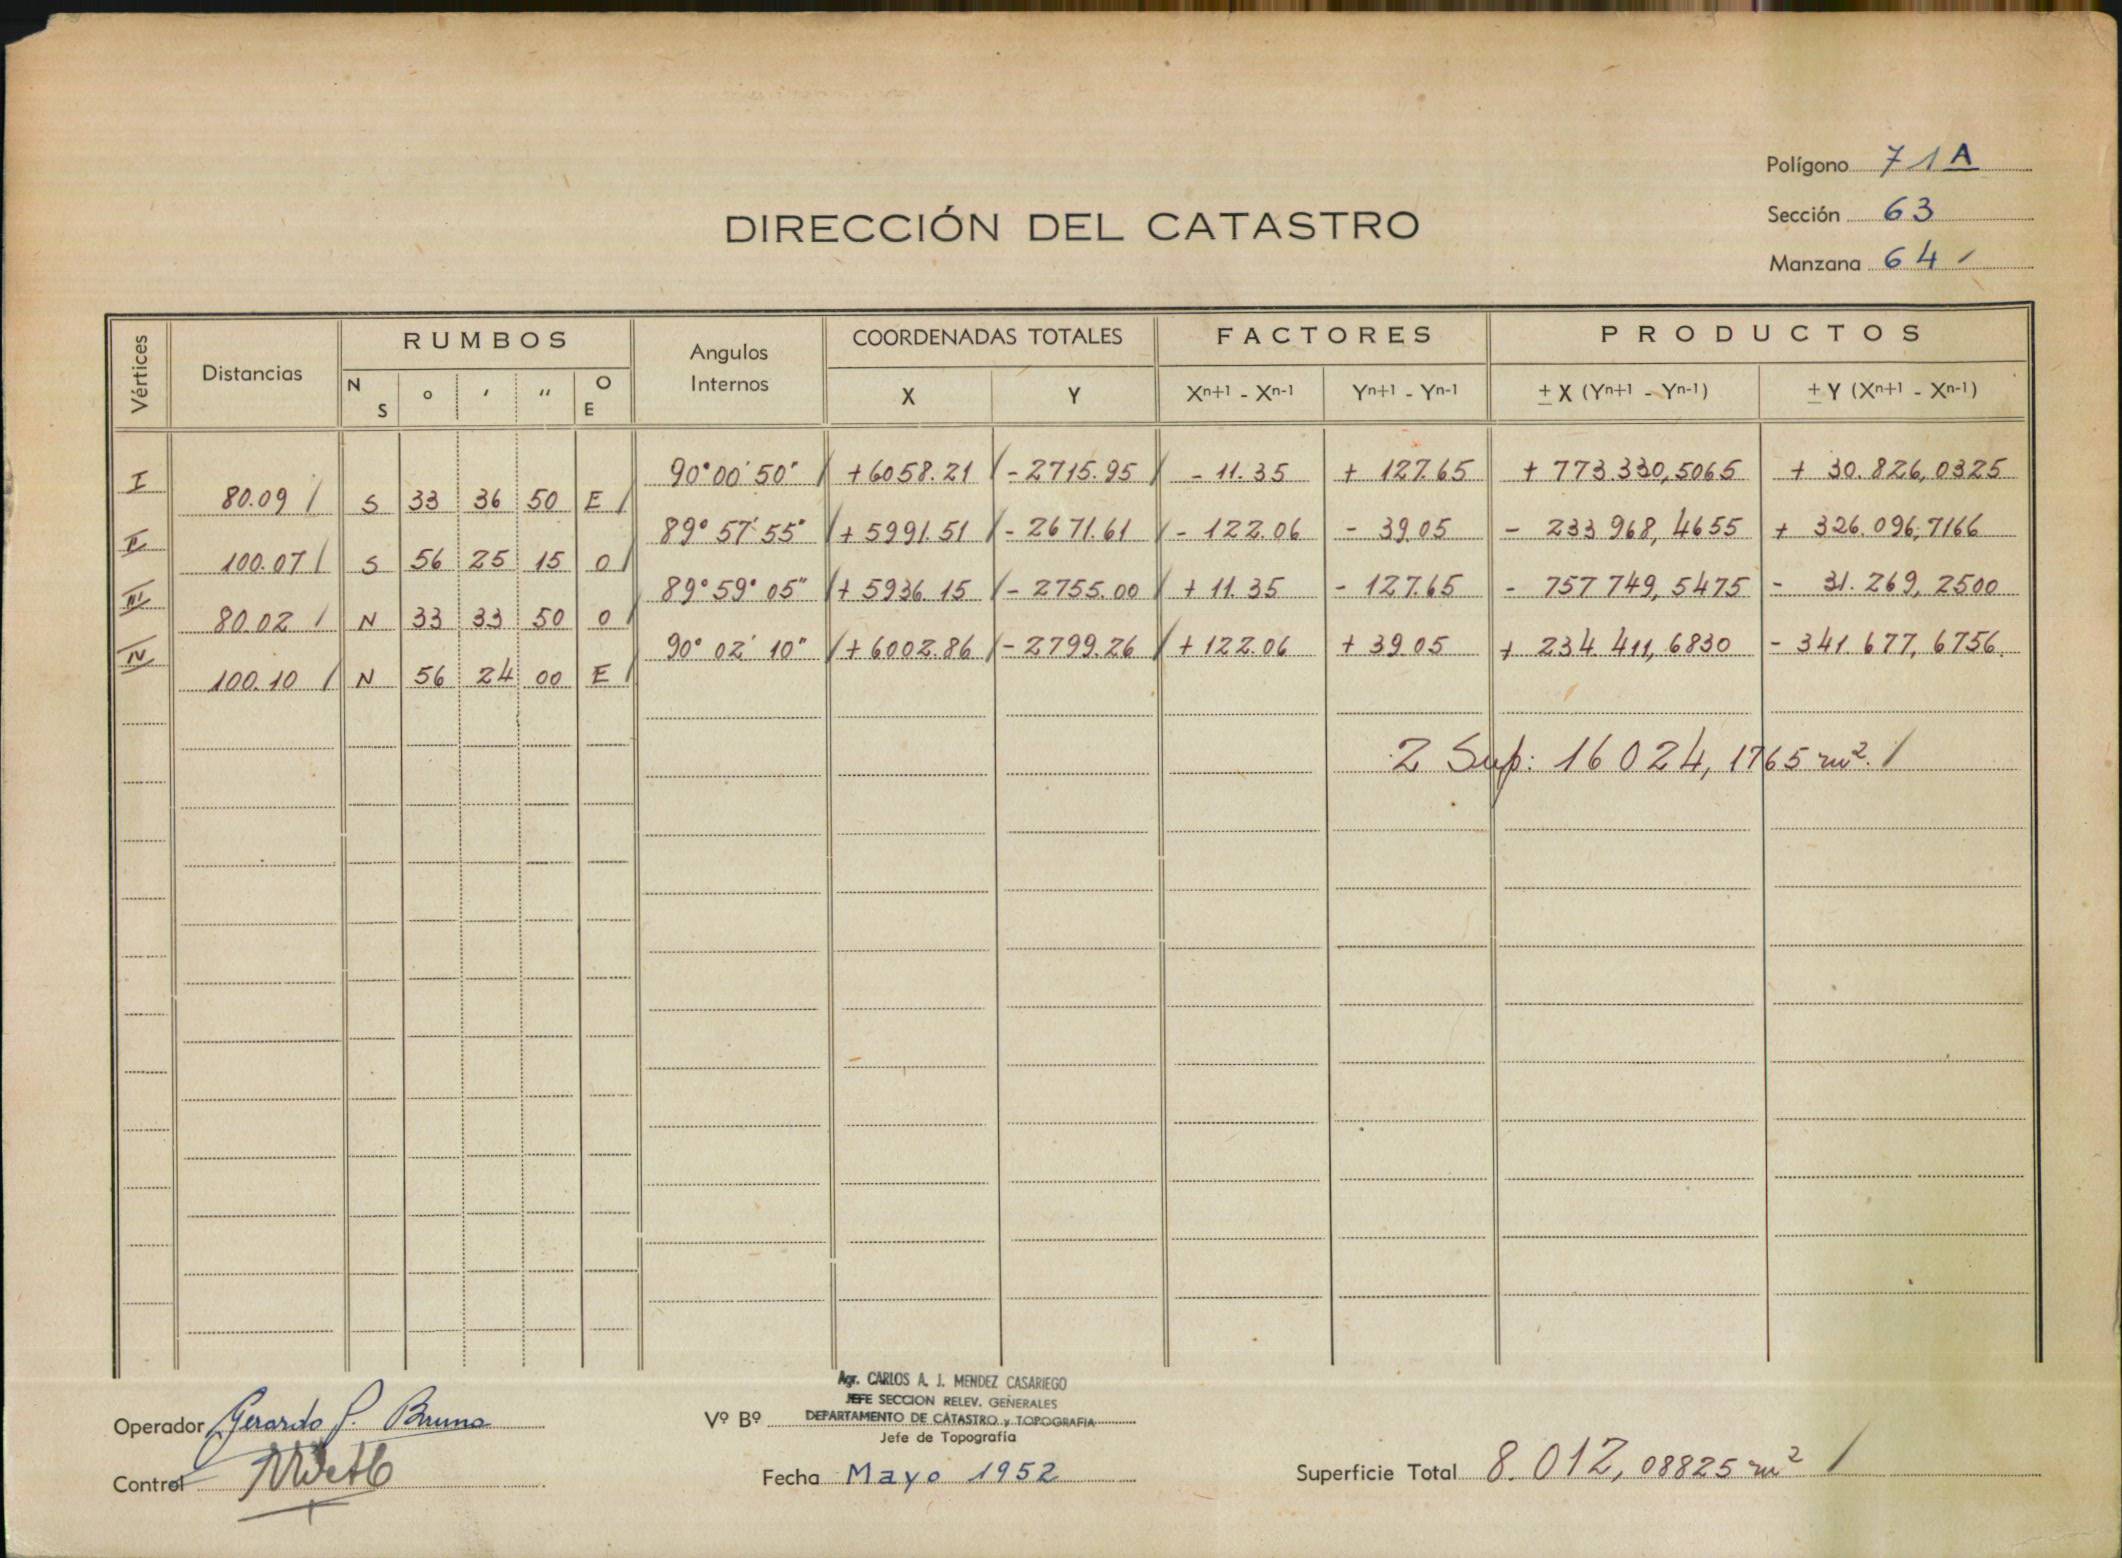 Polígono 71A
DIRECCIÓN DEL CATASTRO
Sección 63
Manzana 64
Vértices Distancias RUMBOS Angulos Internos COORDENADAS TOTALES FACTORES PRODUCTOS
N S ° ′ ″ O E X Y Xn+1 - Xn-1 Yn+1 - Yn-1 ± X (Yn+1 - Yn-1) ± Y (Xn+1 - Xn-1)
I 90°00′50″ +6058.21 -2715.95 - 11.35 + 127.65 + 773.330,5065 + 30.826,0325
80.09 S 33 36 50 E
II 89°57′55″ +5991.51 -2671.61 - 122.06 - 39.05 - 233 968,4655 + 326.096,7166
100.07 S 56 25 15 O
III 89°59°05″ +5936.15 -2755.00 + 11.35 - 127.65 - 757 749,5475 - 31.269,2500
80.02 N 33 33 50 O
IV 90°02′10″ +6002.86 -2799.26 +122.06 + 39.05 + 234.411,6830 - 341.677,6756
100.10 N 56 24 00 E
2 Sup: 16024,1765 m².
Agr. CARLOS A. J. MENDEZ CASARIEGO
JEFE SECCION RELEV. GENERALES
DEPARTAMENTO DE CATASTRO y TOPOGRAFIA
Operador Gerardo J. Bruno
Vº Bº
Jefe de Topografía
Control
Fecha Mayo 1952
Superficie Total 8.012,08825 m²